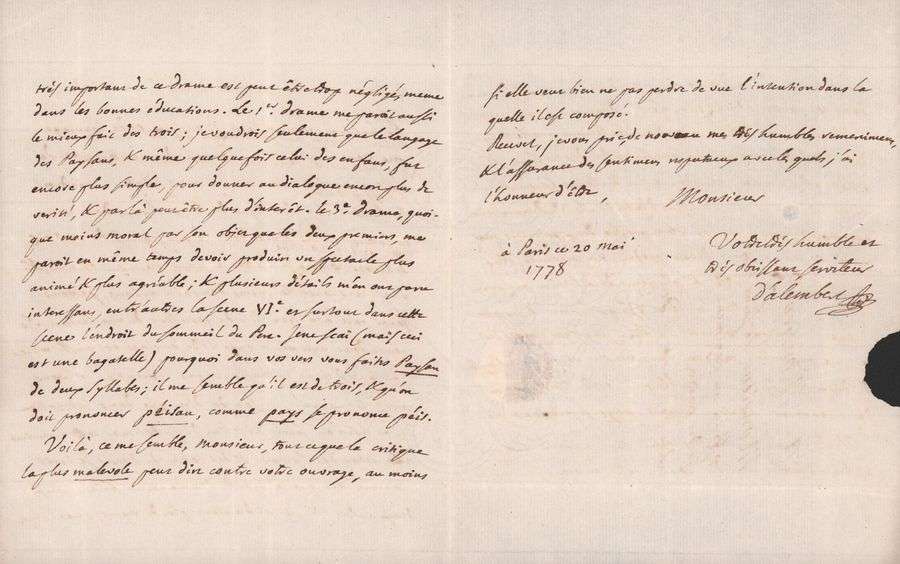 très important de ce drame est peut être trop négligé, meme
dans les bonnes éducations. Le 1er. drame me paroit aussi
le mieux fait des trois; je voudrois seulement que le langage
des Paysans, & même quelquefois celui des enfans, fut
encore plus simple, pour donner au dialogue encore plus de
verité, & par là peut être plus d'interêt. Le 3e. drame, quoi-
que moins moral par son objet que les deux premiers, me
paroit en même temps devoir produire un spectacle plus
animé & plus agréable; & plusieurs détails m'en ont paru
interessans, entr'autres la scene VIe. et surtout dans cette
scene l'endroit du sommeil du Pere. Je ne scai (mais ceci
est une bagatelle) pourquoi dans vos vers vous faites Paysan
de deux syllabes; il me semble qu'il est de trois, & qu'on
doit prononcer péisan, comme pays se prononce péis.
Voilà, ce me semble, Monsieur, tout ce que la critique
la plus malevole peut dire contre votre ouvrage, au moins
si elle veut bien ne pas perdre de vue l'intention dans la
quelle il est composé.
Recevez, je vous prie, de nouveau mes très humbles remercimens,
& l'assurance des sentimens respectueux avec lesquels j'ai
l'honneur d'être, Monsieur
à Paris ce 20 mai
1778
Votre très humble et
très obéissant serviteur
D'alembert